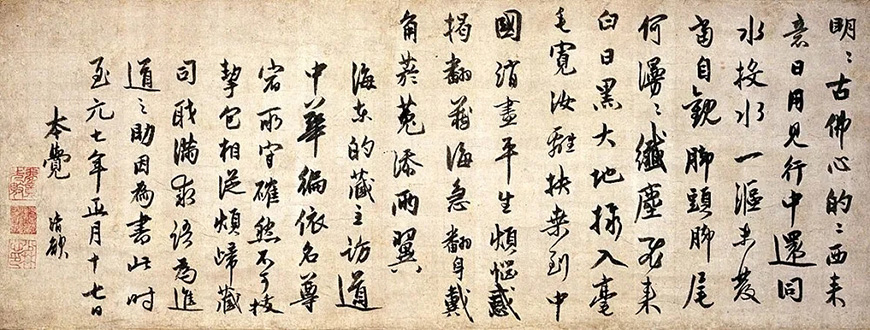 明〻古佛心的〻西来
意日用見行中還同
水投水一漚未發
當自觀脚頭脚尾
何漫〻纖塵不来
白日黑大地撮入毫
毛寬汝離扶桒到中
國消盡平生煩惱惑
掲翻蔵海急翻身戴
角菸菟添兩翼
海東的藏主訪道
中華徧依名尊
宿所守確然不可拔
挈包相從煩歸藏
司職滿求語為進
道之助因為書此時
至元七年正月十七日
本覺 清欲